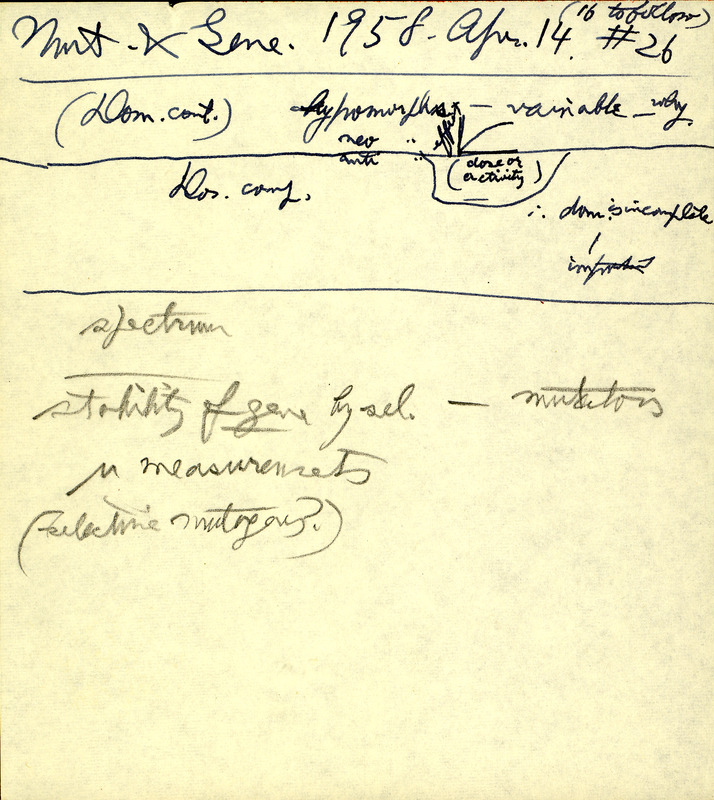 (16 to follow)
Mut. & Gene. 1958. Apr. 14. #26
(Dom. cont.) hypomorphs — variable — why
neo
anti
(dose or activity)
Dos. comp.
∴ dom. is incomplete
spectrum
stability of gene by sel. — mutators
μ measurements
(selective mutagens?)